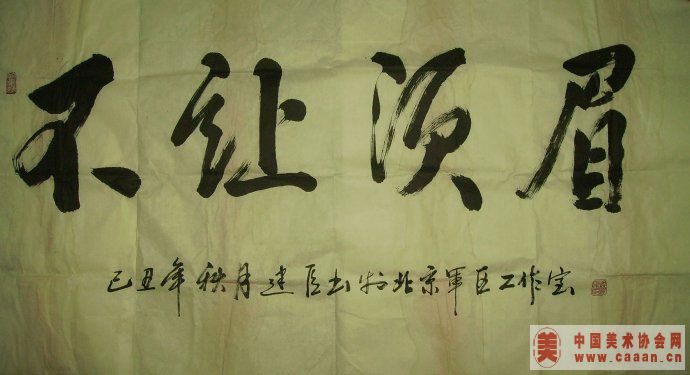 不让须眉
己丑年秋月建臣书于北京军区工作室
美 中国美术协会网
www.caaan.cn